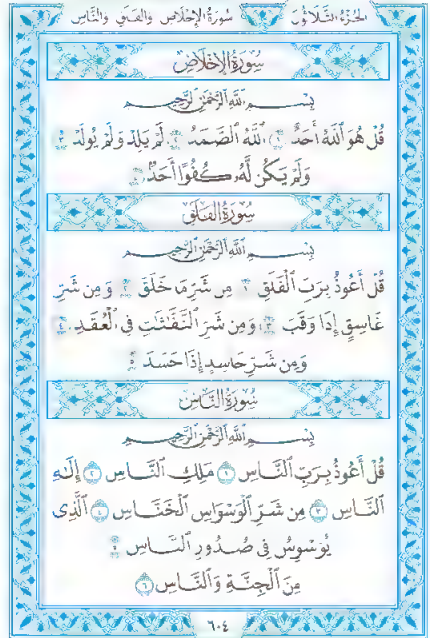 الجزء الثلاثون سورة الإخلاص والفلق والناس
سُورَةُ الإِخْلَاصِ
بِسْمِ اللَّهِ الرَّحْمَٰنِ الرَّحِيمِ
قُلْ هُوَ اللَّهُ أَحَدٌ ١ اللَّهُ الصَّمَدُ ٢ لَمْ يَلِدْ وَلَمْ يُولَدْ ٣
وَلَمْ يَكُن لَّهُ كُفُوًا أَحَدٌ ٤
سُورَةُ الفَلَقِ
بِسْمِ اللَّهِ الرَّحْمَٰنِ الرَّحِيمِ
قُلْ أَعُوذُ بِرَبِّ الْفَلَقِ ١ مِن شَرِّ مَا خَلَقَ ٢ وَمِن شَرِّ
غَاسِقٍ إِذَا وَقَبَ ٣ وَمِن شَرِّ النَّفَّٰثَٰتِ فِي الْعُقَدِ ٤
وَمِن شَرِّ حَاسِدٍ إِذَا حَسَدَ ٥
سُورَةُ النَّاسِ
بِسْمِ اللَّهِ الرَّحْمَٰنِ الرَّحِيمِ
قُلْ أَعُوذُ بِرَبِّ النَّاسِ ١ مَلِكِ النَّاسِ ٢ إِلَٰهِ
النَّاسِ ٣ مِن شَرِّ الْوَسْوَاسِ الْخَنَّاسِ ٤ الَّذِي
يُوَسْوِسُ فِي صُدُورِ النَّاسِ ٥
مِنَ الْجِنَّةِ وَالنَّاسِ ٦
٦٠٤